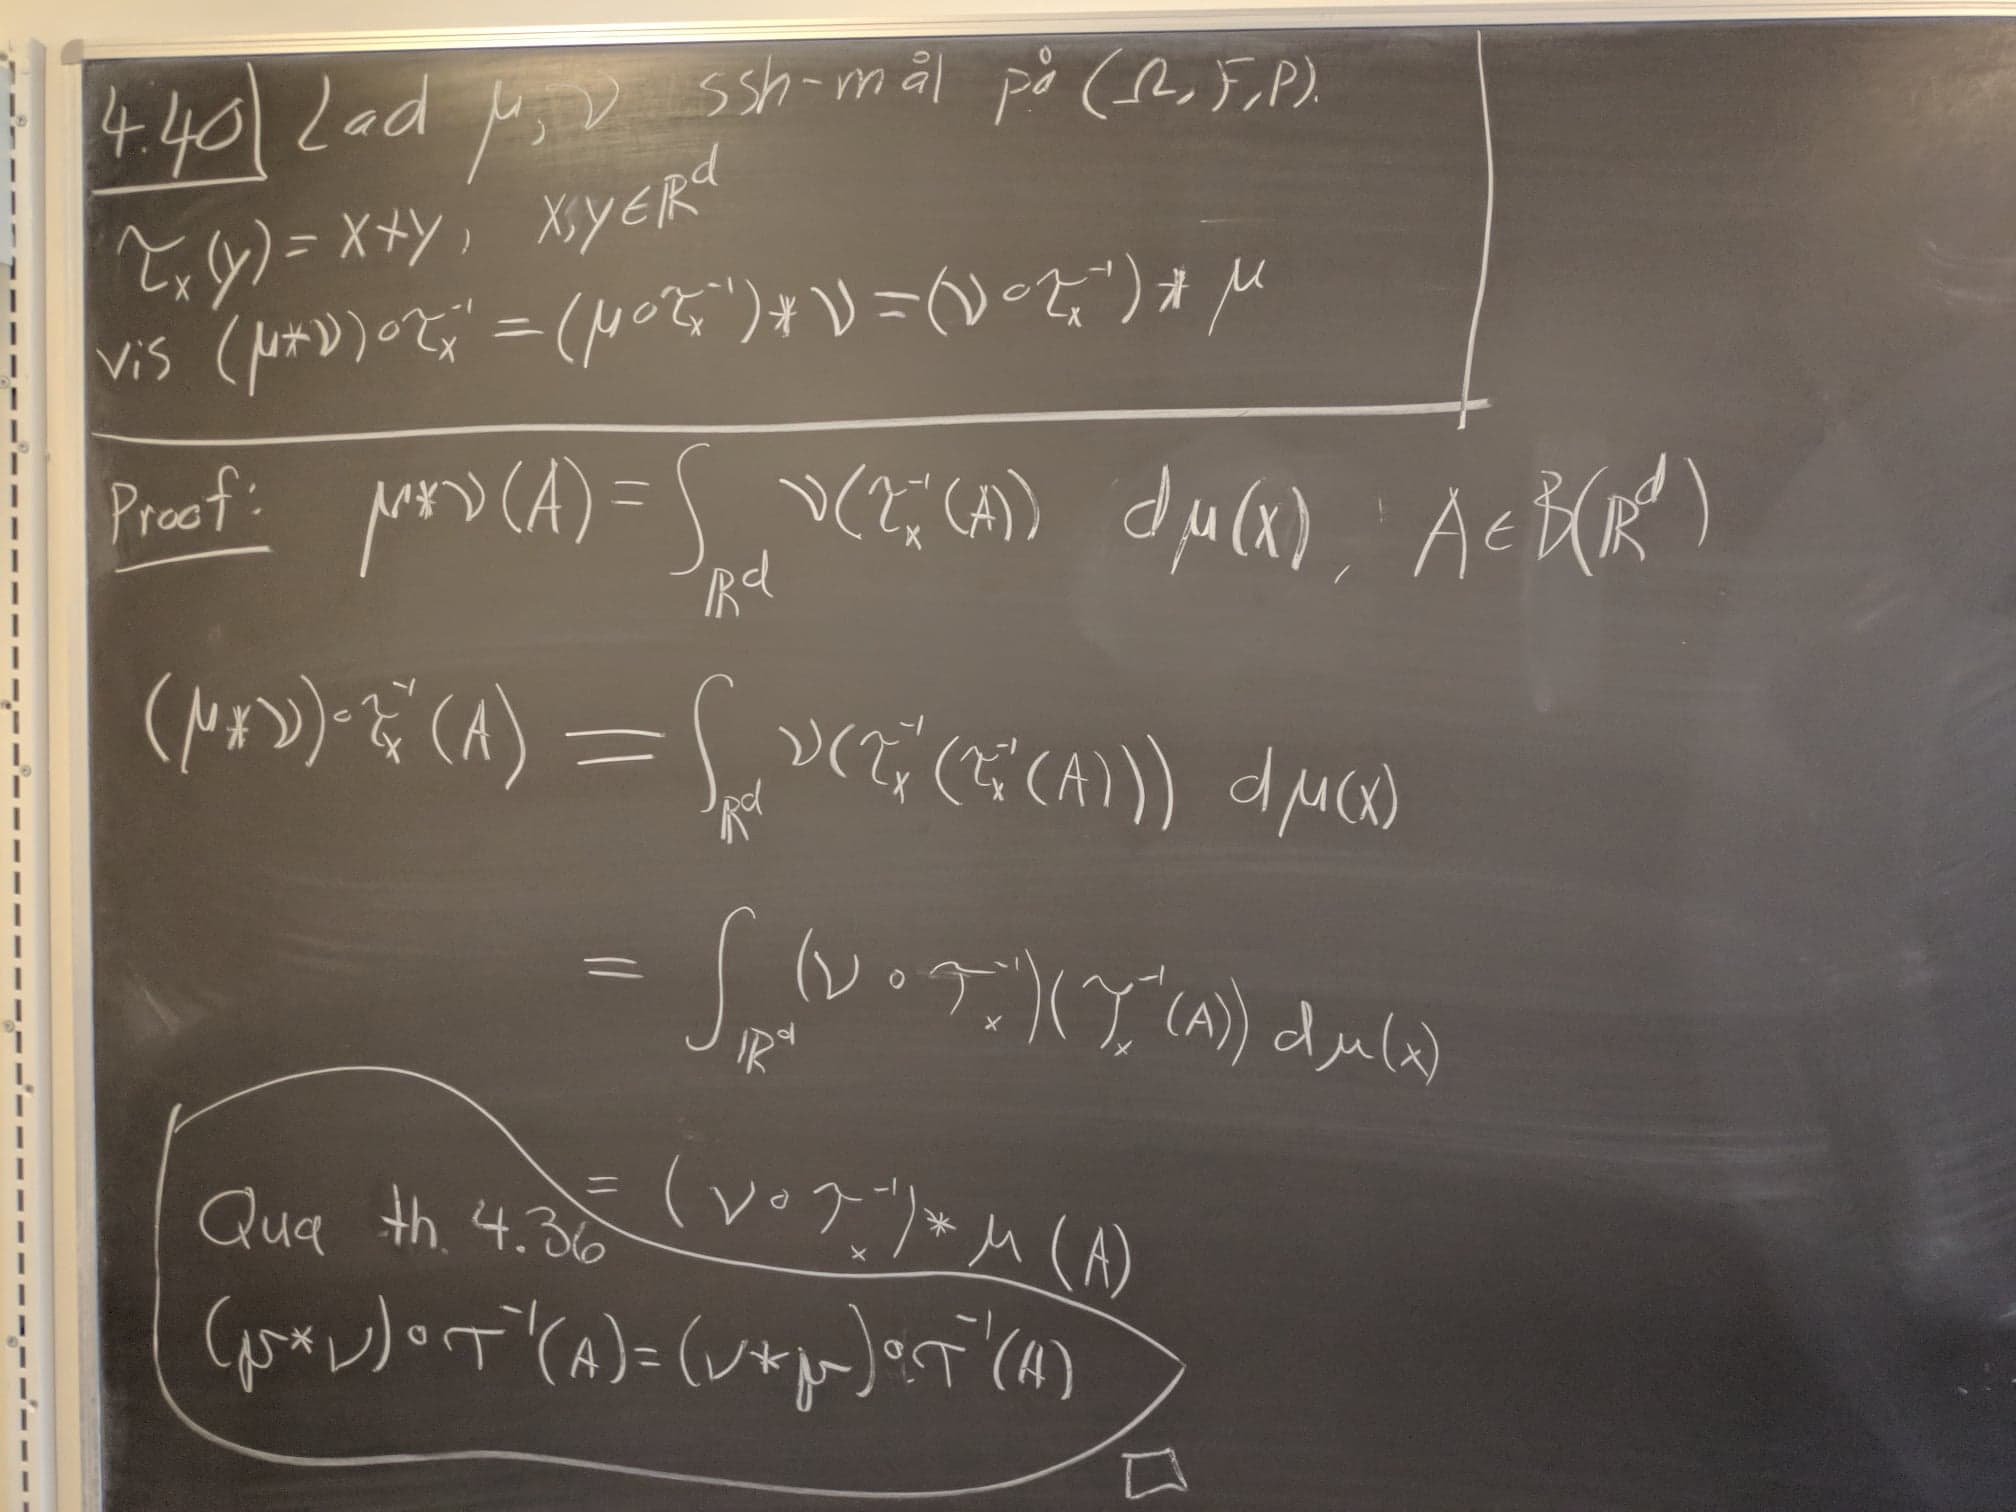 4.40 Lad μ, ν ssh-mål på (Ω, F, P).
τₓ(y) = x+y, x,y∈ℝᵈ
vis (μ*ν)∘τₓ⁻¹ = (μ∘τₓ⁻¹)*ν = (ν∘τₓ⁻¹)*μ
Proof: μ*ν(A) = ∫_ℝᵈ ν(τₓ⁻¹(A)) dμ(x), A∈B(ℝᵈ)
(μ*ν)∘τₓ⁻¹(A) = ∫_ℝᵈ ν(τₓ⁻¹(τₓ⁻¹(A))) dμ(x)
= ∫_ℝᵈ (ν∘τₓ⁻¹)(τₓ⁻¹(A)) dμ(x)
= (ν∘τₓ⁻¹)*μ(A)
Qua th. 4.36
(μ*ν)∘τ⁻¹(A) = (ν*μ)∘τ⁻¹(A)
□